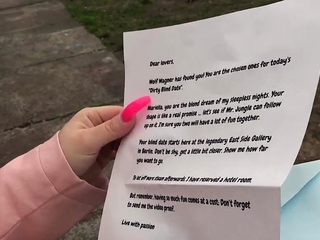 Dear lovers,
Wolf Wagner has found you! You are the chosen ones for today's
"Dirty Blind Date".
Mariella, you are the blond dream of my sleepless nights. Your
shape is like a real promise ... let's see if Mr. Jungle can follow
up on it. I'm sure you two will have a lot of fun together.
Your blind date starts here at the legendary East Side Gallery
in Berlin. Don't be shy, get a little bit closer. Show me how far
you want to go
To let off more steam afterwards, I have reserved a hotel room.
But remember, having so much fun comes at a cost: Don't forget
to send me the video proof.
Live with passion